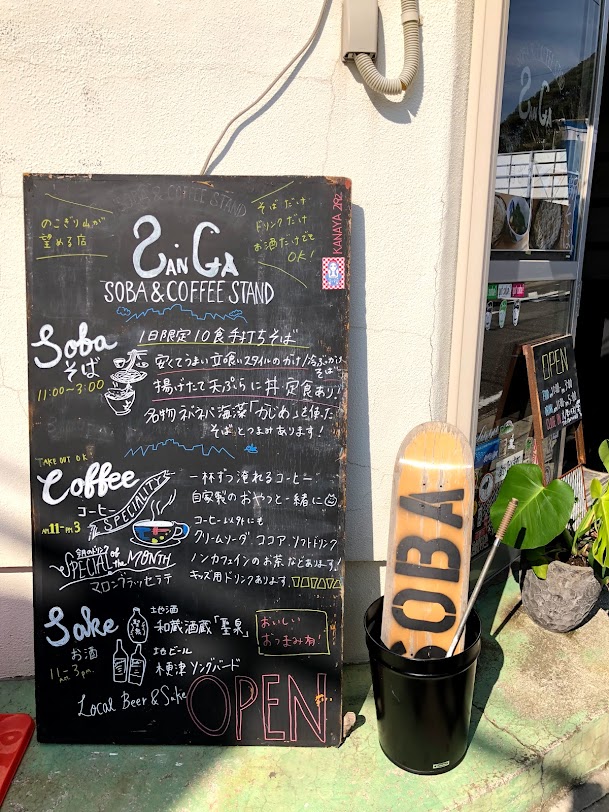 SOBA & COFFEE STAND
のこぎり山が
望める店
そばだけ
ドリンクだけ
お酒だけでも
OK!
KANAYA 292
SANGA
SOBA & COFFEE STAND
Soba
そば
11:00～3:00
1日限定10食手打ちそば
安くてうまい立喰いスタイルのかけ/冷ぶっかけ
そば
揚げたて天ぷらに丼定食あり!
名物ネバネバ海藻「かじめ」を使った
そばとつまみあります!
TAKE OUT OK!
Coffee
コーヒー
AM11-PM3
SPECIALITY
一杯ずつ淹れるコーヒー
自家製のおやつと一緒に
コーヒー以外にも
クリームソーダ、ココア、ソフトドリンク
ノンカフェインのお茶などあります!
キッズ用ドリンクあります。
SPECIAL of the MONTH
マロングラッセラテ
Sake
お酒
11-3pm
地酒
和蔵酒蔵「聖泉」
地ビール
木更津ソングバード
おいしい
おつまみ有!
Local Beer & Sake
OPEN
SOBA
OPEN